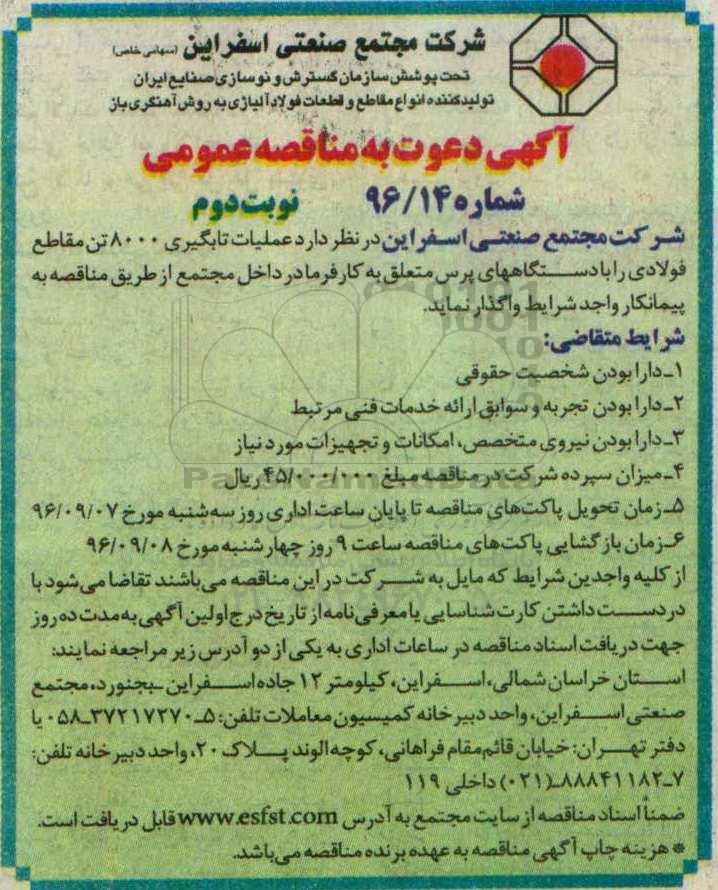 شرکت مجتمع صنعتی اسفراین (سهامی خاص)
تحت پوشش سازمان گسترش و نوسازی صنایع ایران
تولیدکننده انواع مقاطع و قطعات فولاد آلیاژی به روش آهنگری باز
آگهی دعوت به مناقصه عمومی
شماره ۹۶/۱۴ نوبت دوم
شرکت مجتمع صنعتی اسفراین در نظر دارد عملیات تابگیری ۸۰۰۰ تن مقاطع
فولادی را با دستگاههای پرس متعلق به کارفرما در داخل مجتمع از طریق مناقصه به
پیمانکار واجد شرایط واگذار نماید.
شرایط متقاضی:
۱ـ دارا بودن شخصیت حقوقی
۲ـ دارا بودن تجربه و سوابق ارائه خدمات فنی مرتبط
۳ـ دارا بودن نیروی متخصص، امکانات و تجهیزات مورد نیاز
۴ـ میزان سپرده شرکت در مناقصه مبلغ ۴۵/۰۰۰/۰۰۰ ریال
۵ـ زمان تحویل پاکت‌های مناقصه تا پایان ساعت اداری روز سه‌شنبه مورخ ۹۶/۰۹/۰۷
۶ـ زمان بازگشایی پاکت‌های مناقصه ساعت ۹ روز چهارشنبه مورخ ۹۶/۰۹/۰۸
از کلیه واجدین شرایط که مایل به شرکت در این مناقصه می‌باشند تقاضا می‌شود با
در دست داشتن کارت شناسایی یا معرفی‌نامه از تاریخ درج اولین آگهی به مدت ده روز
جهت دریافت اسناد مناقصه در ساعات اداری به یکی از دو آدرس زیر مراجعه نمایند:
استان خراسان شمالی، اسفراین، کیلومتر ۱۲ جاده اسفراین ـ بجنورد، مجتمع
صنعتی اسفراین، واحد دبیرخانه کمیسیون معاملات تلفن: ۵ـ۳۷۲۱۷۲۷۰ـ۰۵۸ یا
دفتر تهران: خیابان قائم‌مقام فراهانی، کوچه الوند پلاک ۲۰، واحد دبیرخانه تلفن:
۷ـ۸۸۸۴۱۱۸۲ـ(۰۲۱) داخلی ۱۱۹
ضمناً اسناد مناقصه از سایت مجتمع به آدرس www.esfst.com قابل دریافت است.
* هزینه چاپ آگهی مناقصه به عهده برنده مناقصه می‌باشد.